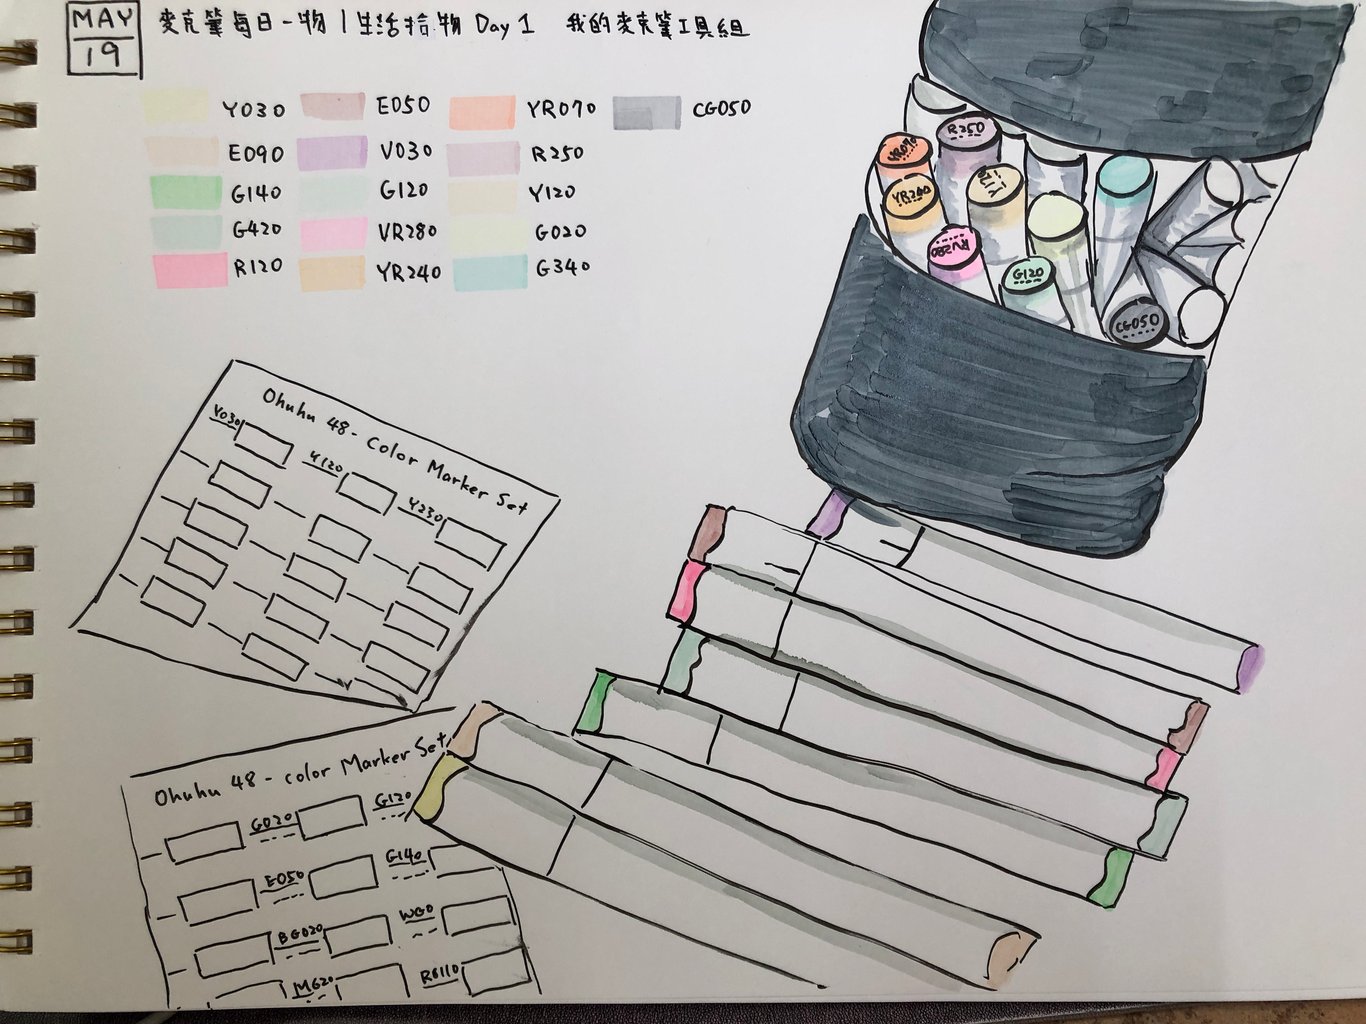 MAY
19
麥克筆每日一物 | 生活拾物 Day 1 我的麥克筆工具組
Y030 E050 YR070 CG050
E090 V030 R250
G140 G120 Y120
G420 VR280 G020
R120 YR240 G340
R250
YR070
YR240
RV280
G120
CG050
Ohuhu 48-Color Marker Set
Y030
Y120
Y230
Ohuhu 48-color Marker Set
G020 G120
E050 G140
BG020 WG0
MG20